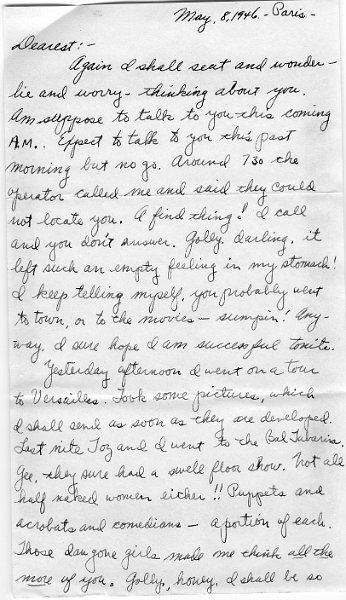 May, 8, 1946. - Paris -
Dearest:-
Again I shall seat and wonder -
lie and worry - thinking about you.
Am suppose to talk to you this coming
A.M.. Expect to talk to you this past
morning but no go. Around 7:30 the
operator called me and said they could
not locate you. A find thing! I call
and you don't answer. Golly, darling, it
left such an empty feeling in my stomach!
I keep telling myself, you probably went
to town, or to the movies - sumpin! Any-
way, I sure hope I am successful tonite.
Yesterday afternoon I went on a tour
to Versailles. Took some pictures, which
I shall send as soon as they are developed.
Last nite Toz and I went to the Bal Tabarin.
Gee, they sure had a swell floor show. Not all
half naked women either!! Puppets and
acrobats and comedians - a portion of each.
Those dan gone girls made me think all the
more of you. Golly, honey, I shall be so